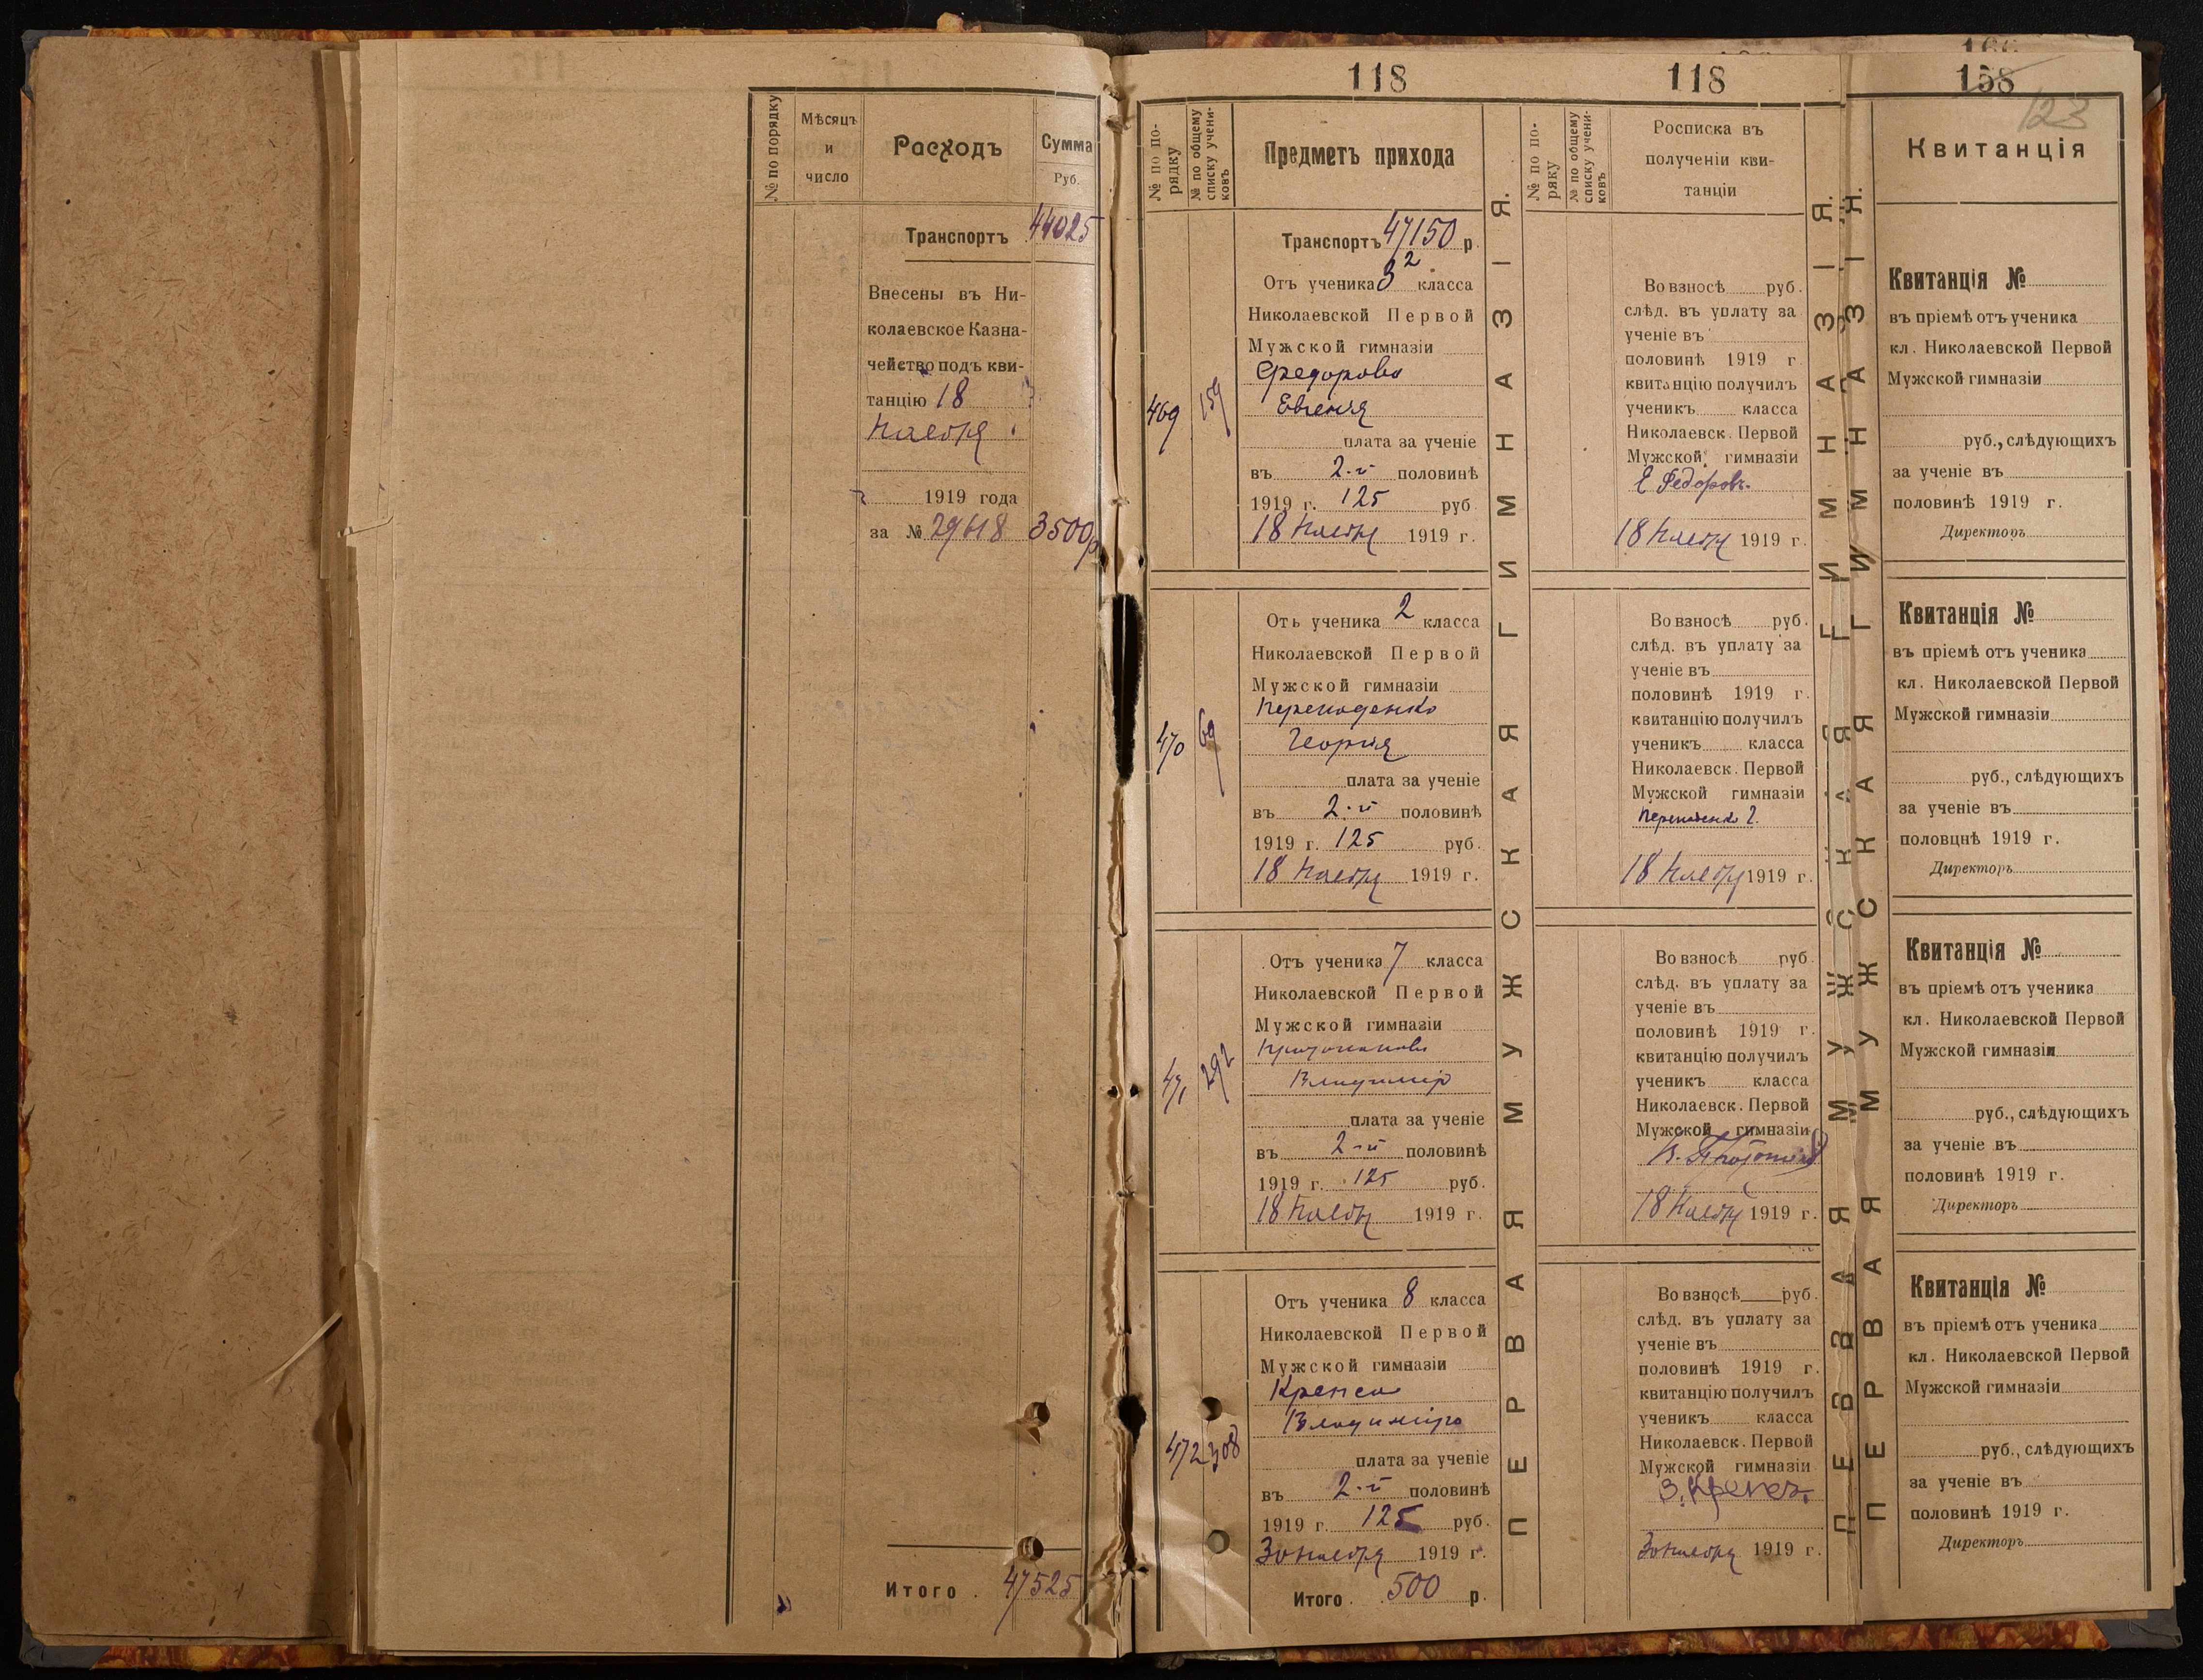 № по порядку
Мѣсяцъ
и
число
Расходъ
Сумма
Руб.
Транспортъ 44025
Внесены въ Ни-
колаевское Казна-
чейство подъ кви-
танцію 18
Ноября
1919 года
за № 29618 3500р
Итого . 47525
118
№ по по-
рядку
№ по общему
списку учени-
ковъ
Предметъ прихода
Транспортъ 47150 р.
Отъ ученика 3² класса
Николаевской Первой
Мужской гимназіи
Федорова
469 159 Евгенія
плата за ученіе
въ 2-й половинѣ
1919 г. 125 руб
18 Ноября 1919 г.
Отъ ученика 2 класса
Николаевской Первой
Мужской гимназіи
470 69 Георгія
плата за ученіе
въ 2-й половинѣ
1919 г. 125 руб.
18 Ноября 1919 г.
Отъ ученика 7 класса
Николаевской Первой
Мужской гимназіи
471 292 Владимір
плата за ученіе
въ 2-й половинѣ
1919 г. 125 руб.
18 Ноября 1919 г.
Отъ ученика 8 класса
Николаевской Первой
Мужской гимназіи
Кренса
Владиміра
472 308 плата за ученіе
въ 2-й половинѣ
1919 г. 125 руб.
30 Ноября 1919 г.
Итого . 500 р.
ПЕРВАЯ МУЖСКАЯ ГИМНАЗІЯ.
118
№ по по-
ряку
№ по общему
списку учени-
ковъ
Росписка въ
полученіи кви-
танціи
Во взносѣ руб.
слѣд. въ уплату за
ученіе въ
половинѣ 1919 г
квитанцію получилъ
ученикъ класса
Николаевск. Первой
Мужской гимназіи
Е Федоровъ.
18 Ноября 1919 г.
Во взносѣ руб.
слѣд. въ уплату за
ученіе въ
половинѣ 1919 г.
квитанцію получилъ
ученикъ класса
Николаевск. Первой
Мужской гимназіи
18 Ноября 1919 г.
Во взносѣ руб
слѣд. въ уплату за
ученіе въ
половинѣ 1919 г.
квитанцію получилъ
ученикъ класса
Николаевск. Первой
Мужской гимназіи
18 Ноября 1919 г.
Во взносѣ руб.
слѣд. въ уплату за
ученіе въ
половинѣ 1919 г.
квитанцію получилъ
ученикъ класса
Николаевск. Первой
Мужской гимназіи
В. Кренсъ.
30 Ноября 1919 г.
ПЕРВАЯ МУЖСКАЯ ГИМНАЗІЯ.
ПЕРВАЯ МУЖСКАЯ ГИМНАЗІЯ.
158
123
Квитанція
Квитанція №
въ пріемѣ отъ ученика
кл. Николаевской Первой
Мужской гимназіи
руб., слѣдующихъ
за ученіе въ
половинѣ 1919 г.
Директоръ
Квитанція №
въ пріемѣ отъ ученика
кл. Николаевской Первой
Мужской гимназіи
руб., слѣдующихъ
за ученіе въ
половцнѣ 1919 г.
Директоръ
Квитанція №
въ пріемѣ отъ ученика
кл. Николаевской Первой
Мужской гимназіи
руб., слѣдующихъ
за ученіе въ
половинѣ 1919 г.
Директоръ
Квитанція №
въ пріемѣ отъ ученика
кл. Николаевской Первой
Мужской гимназіи
руб., слѣдующихъ
за ученіе въ
половинѣ 1919 г.
Директоръ